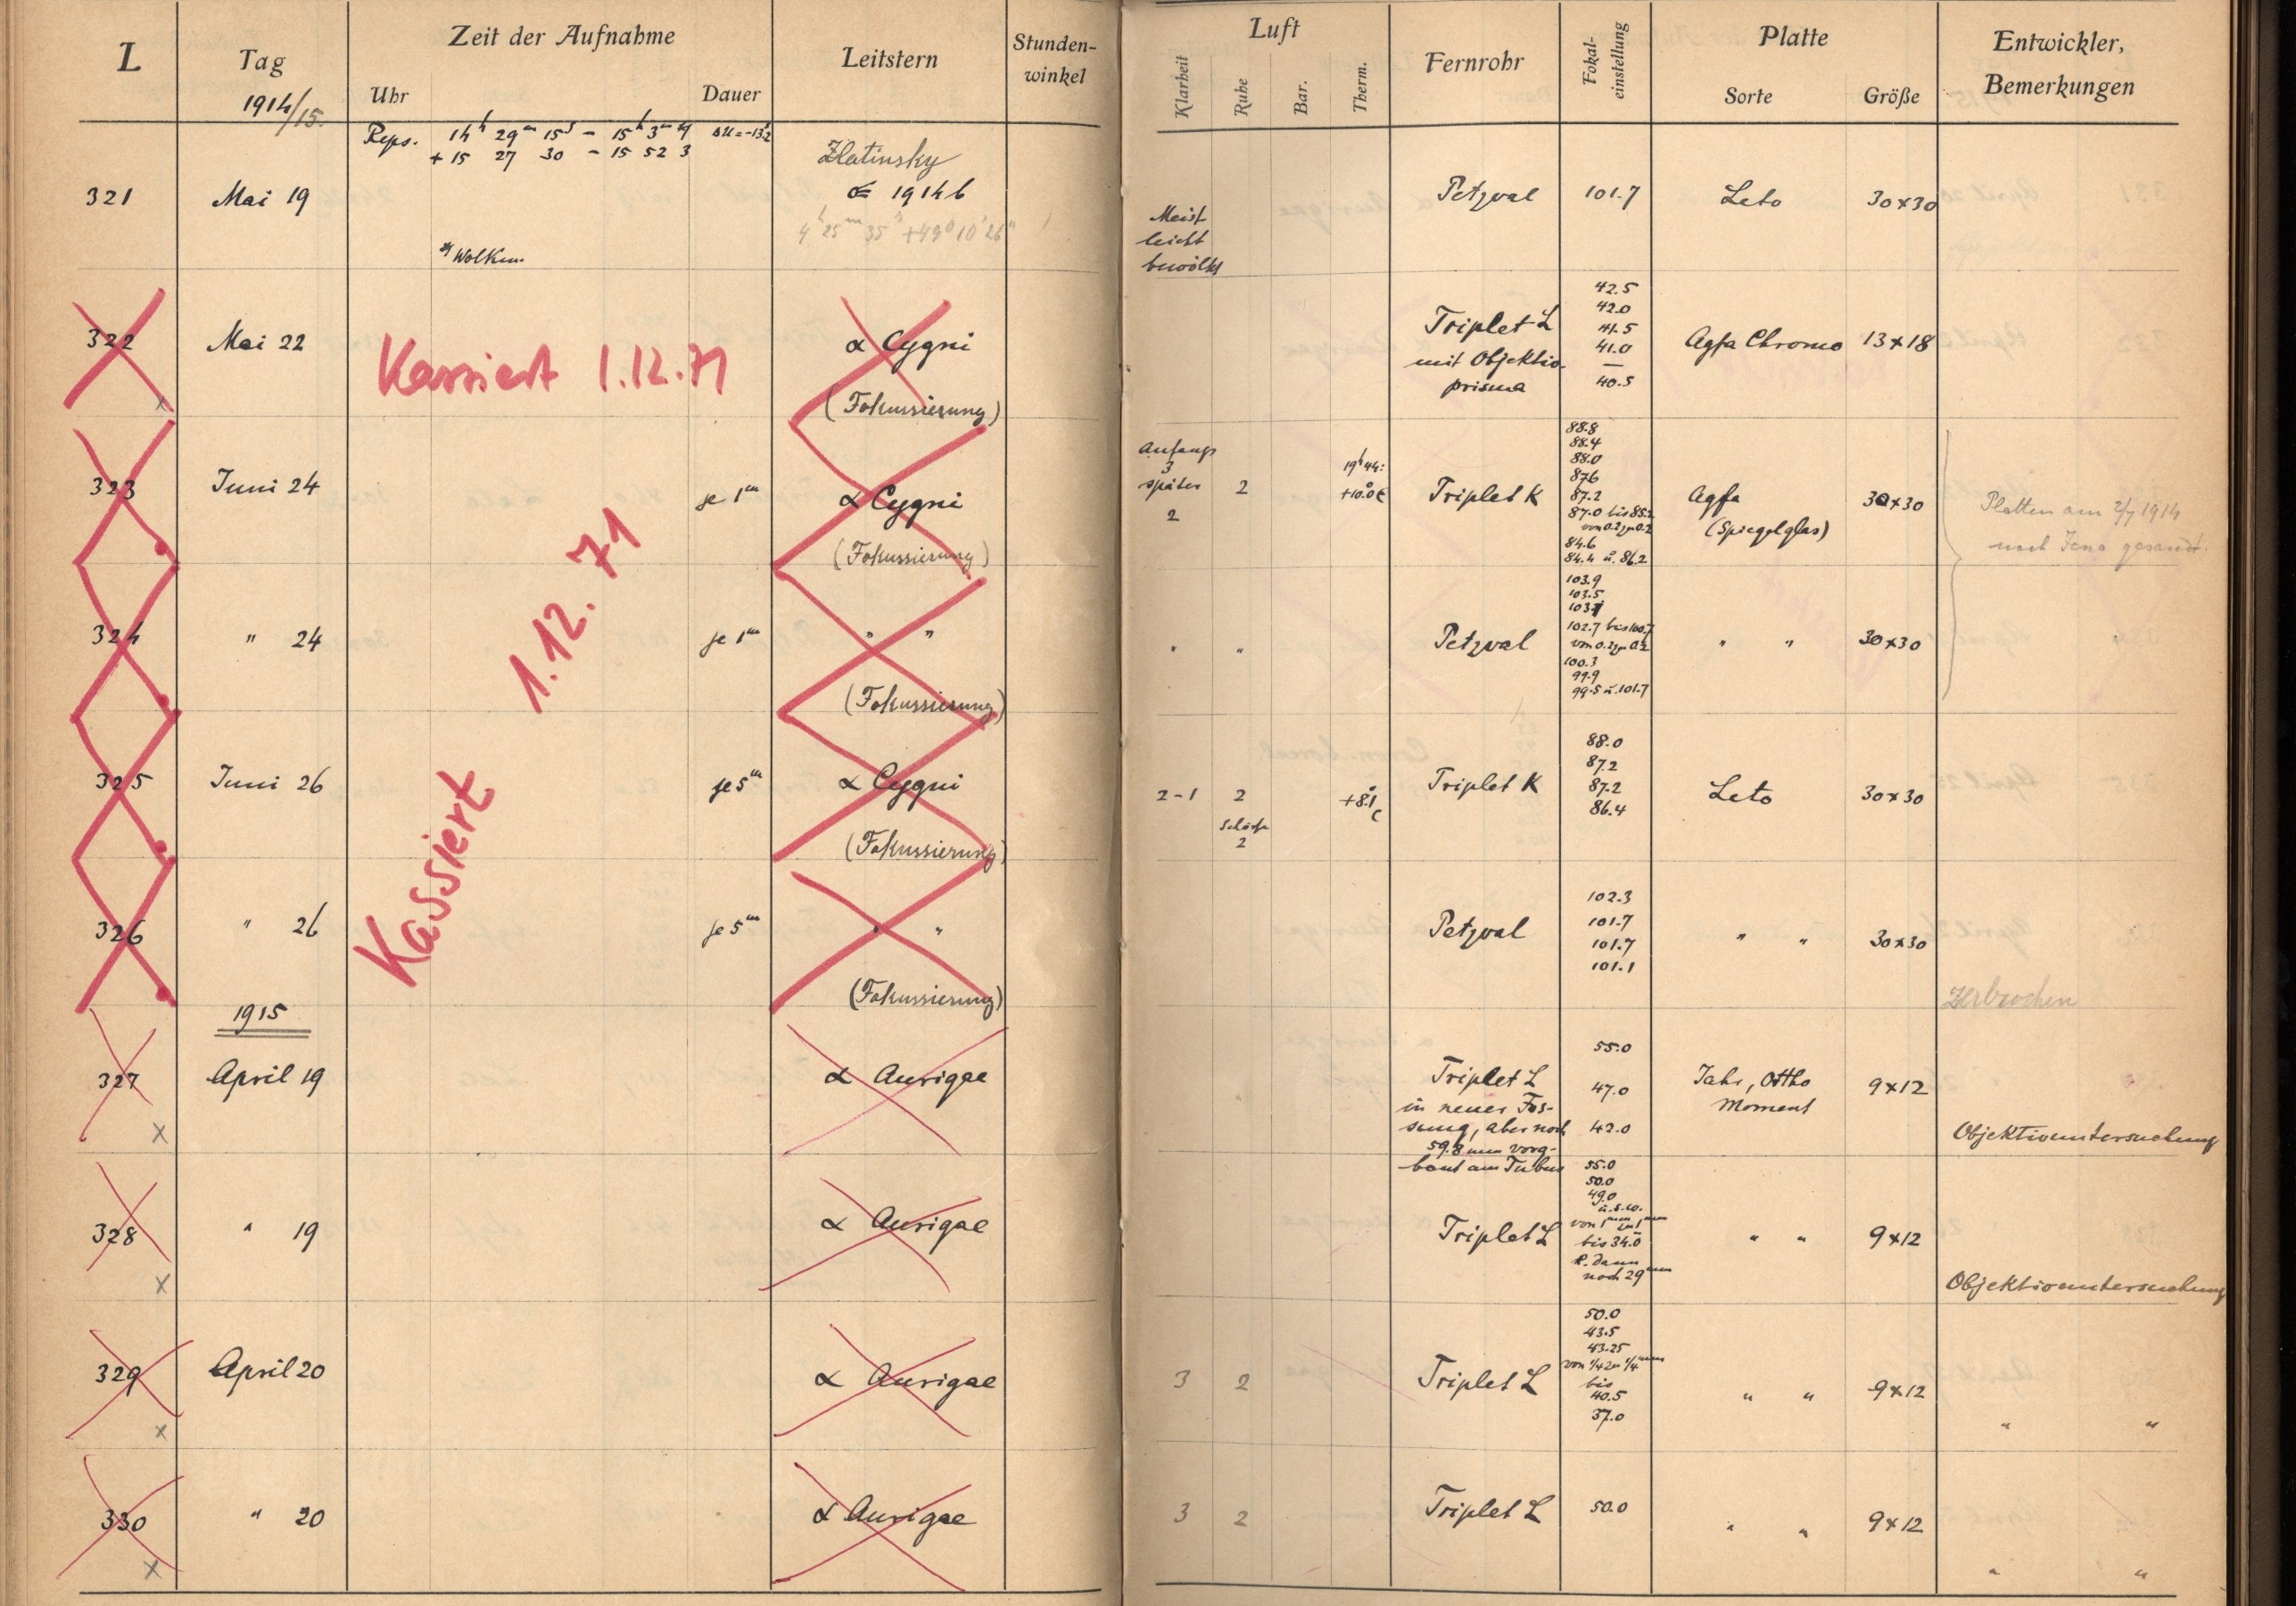 L Tag Zeit der Aufnahme Leitstern Stunden-winkel Luft Fernrohr Fokal-einstellung Platte Entwickler, Bemerkungen
1914/15. Uhr Dauer Klarheit Ruhe Bar. Therm. Sorte Größe
Reps. 14h 29m 15s – 15h 3m 19 ΔU = -13.2
+ 15 27 30 – 15 52 3
Zlatinsky
321 Mai 19 1914 b Petzval 101.7 Leto 30×30
4h 25m 35s +49° 10' 26"
Wolken.
Meist
leicht
bewölkt
322 Mai 22 α Cygni
(Fokussierung)
Kassiert 1.12.71
Triplet L
mit Objektiv-
prisma
42.5
42.0
41.5
41.0
—
40.5
Agfa Chromo 13×18
323 Juni 24 je 1m α Cygni
(Fokussierung)
Anfangs
3
später
2
2
19h 44:
+10.0 C
Triplet K
88.8
88.4
88.0
87.6
87.2
87.0 bis 85.2
von 0.2 zu 0.2
84.6
84.4 u. 86.2
Agfa
(Spiegelglas)
30×30
Platten am 2/7 1914
nach Jena gesandt.
324 " 24 je 1m " "
(Fokussierung)
" "
Petzval
103.9
103.5
103.1
102.7 bis 100.7
von 0.2 zu 0.2
100.3
99.9
99.5 u. 101.7
" " 30×30
1.12.71
325 Juni 26 je 5m α Cygni
(Fokussierung)
2-1 2
Schärfe
2
+8.1 C
Triplet K
88.0
87.2
87.2
86.4
Leto 30×30
Kassiert
326 " 26 je 5m " "
(Fokussierung)
Petzval
102.3
101.7
101.7
101.1
" " 30×30
Zerbrochen
1915
327 April 19 α Aurigae
x
Triplet L
in neuer Fas-
sung, aber noch
59.8 mm vorge-
baut am Tubus
55.0
47.0
42.0
Jahr, Ortho
Moment
9×12
Objektivuntersuchung
328 " 19 α Aurigae
x
Triplet L
55.0
50.0
49.0
u.s.w.
von 1mm zu 1mm
bis 34.0
u. dann
noch 29mm
" " 9×12
Objektivuntersuchung
329 April 20 α Aurigae
x
3 2
Triplet L
50.0
43.5
43.25
von 1/4 zu 1/4mm
bis
40.5
37.0
" " 9×12
" "
330 " 20 α Aurigae
x
3 2
Triplet L 50.0 " " 9×12
" "